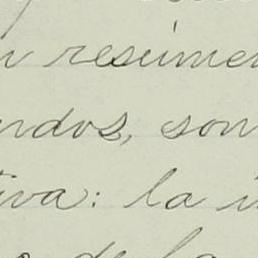 n resúmen
ndos, son
tiva: la i
o de la